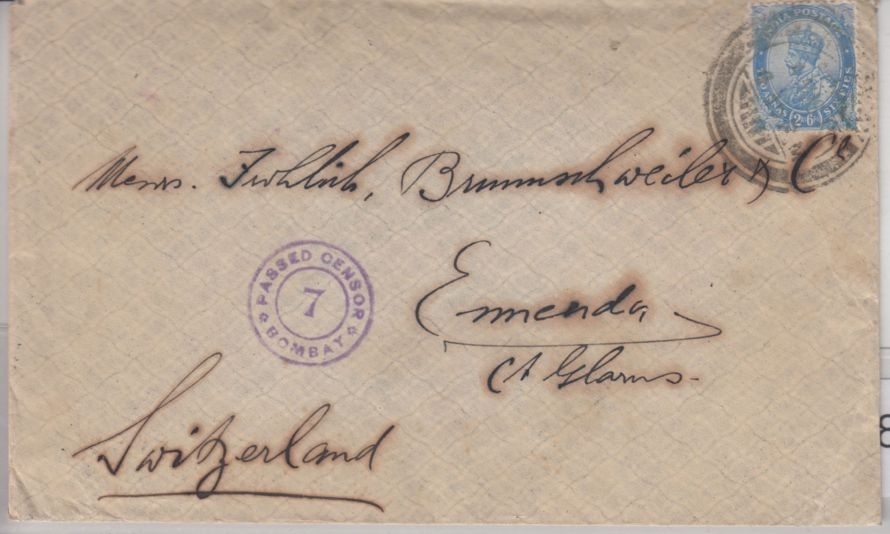 INDIA POSTAGE
2 As 6 Ps
SIX PIES
Messrs. Frohlich, Brunnschweiler & Co
PASSED CENSOR
7
BOMBAY
Ennenda
Ct Glarus.
Switzerland